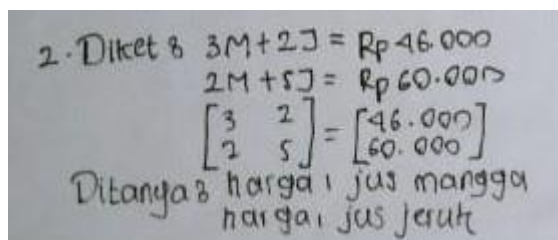 2. Diket : 3M + 2J = Rp 46.000
2M + 5J = Rp 60.000
[3 2
2 5] = [46.000
60.000]
Ditanya : harga 1 jus mangga
harga 1 jus jeruk